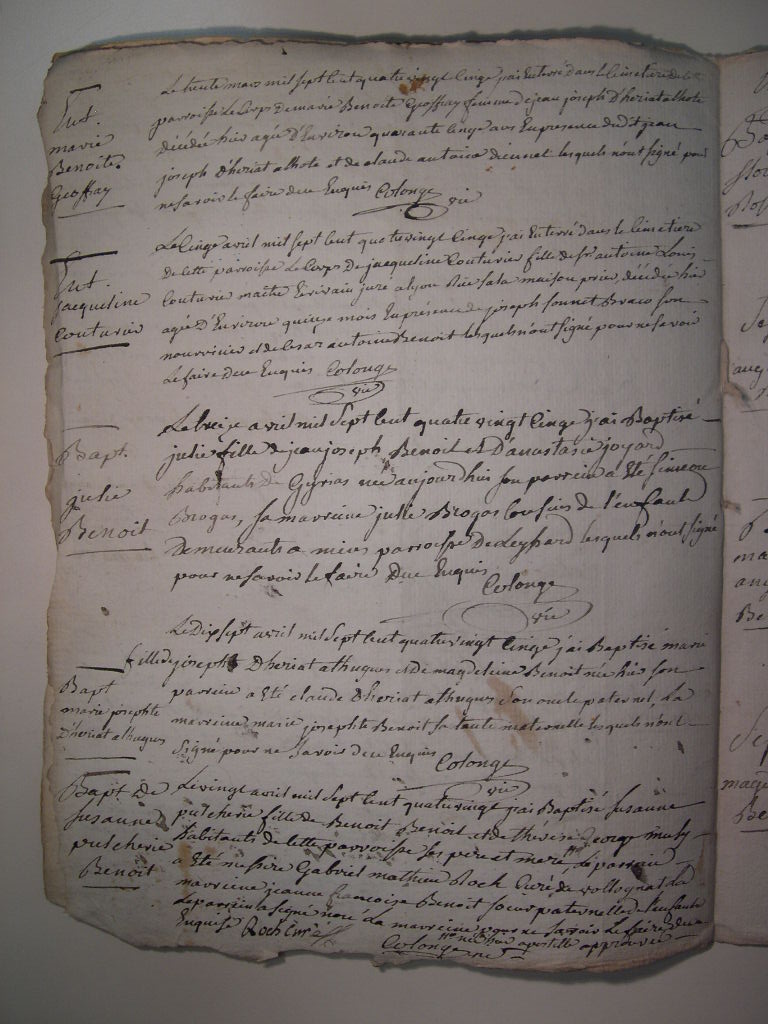 Ent.
marie
Benoite
Geoffray
Le trente mars mil sept cent quatre vingt cinqe j'ai Enterré dans le Cimetiere de
parroisse Le Corps de marie Benoite Geoffray femme de jean joseph D'heriat alhote
décédée hier agée D'Environ quarante cinqe ans En presence dudit jean
joseph D'heriat alhote et de claude antoine lesquels n'ont signé pour
ne savoir le faire due Enquis Colonge
vic
Ent.
jacqueline
Couturier
Le Cinqe avril mil sept cent quatre vingt cinqe j'ai Enterré dans le Cimetiere
de cette parroisse Le Corps De jacqueline Couturier fille de sr antoine Louis
Couturier maitre Ecrivain juré a lyon Rüe sala maison décédée hier
agée D'Environ quinze mois En presence de joseph sonnet Bravo son
nourricier et de Cesar antoine Benoit lesquels n'ont signé pour ne savoir
Le faire Due Enquis Colonge
vic
Bapt.
julie
Benoit
Le treize avril mil sept cent quatre vingt cinqe j'ai Baptisé
julie fille de jean joseph Benoit et D'anastasie joyard
habitants de née aujourdhui son parrein a Eté simeon
Brogas, sa marreine julie Brogas Cousins de l'enfant
Demeurants a parroisse De Leyssard lesquels n'ont signé
pour ne savoir le faire Due Enquis
Colonge
vic
Bapt
marie josephte
D'heriat alhugues
Le Dix sept avril mil sept cent quatre vingt cinqe j'ai Baptisé marie
fille de joseph D'heriat alhugues et de magdeleine Benoit née hier son
parrein a Eté claude D'heriat alhugues son oncle paternel, La
marreine marie josephte Benoit sa tante maternelle lesquels n'ont
signé pour ne savoir due Enquis
Colonge
vic
Bapt De
susanne
pulcherie
Benoit
Le vingt avril mil sept cent quatre vingt j'ai Baptisé susanne
pulcherie fille de Benoit Benoit et de therese George
habitants de cette parroisse ses pere et mere, Le parrein
a Eté messire Gabriel mathieu Roch Curé de vollognat La
marreine jeanne francoize Benoit soeur paternelle de l'enfant
Le parrein a signé non La marreine pour ne savoir Le faire due
Enquise Roch Curé
née hier apostille approuvée
Colonge vic